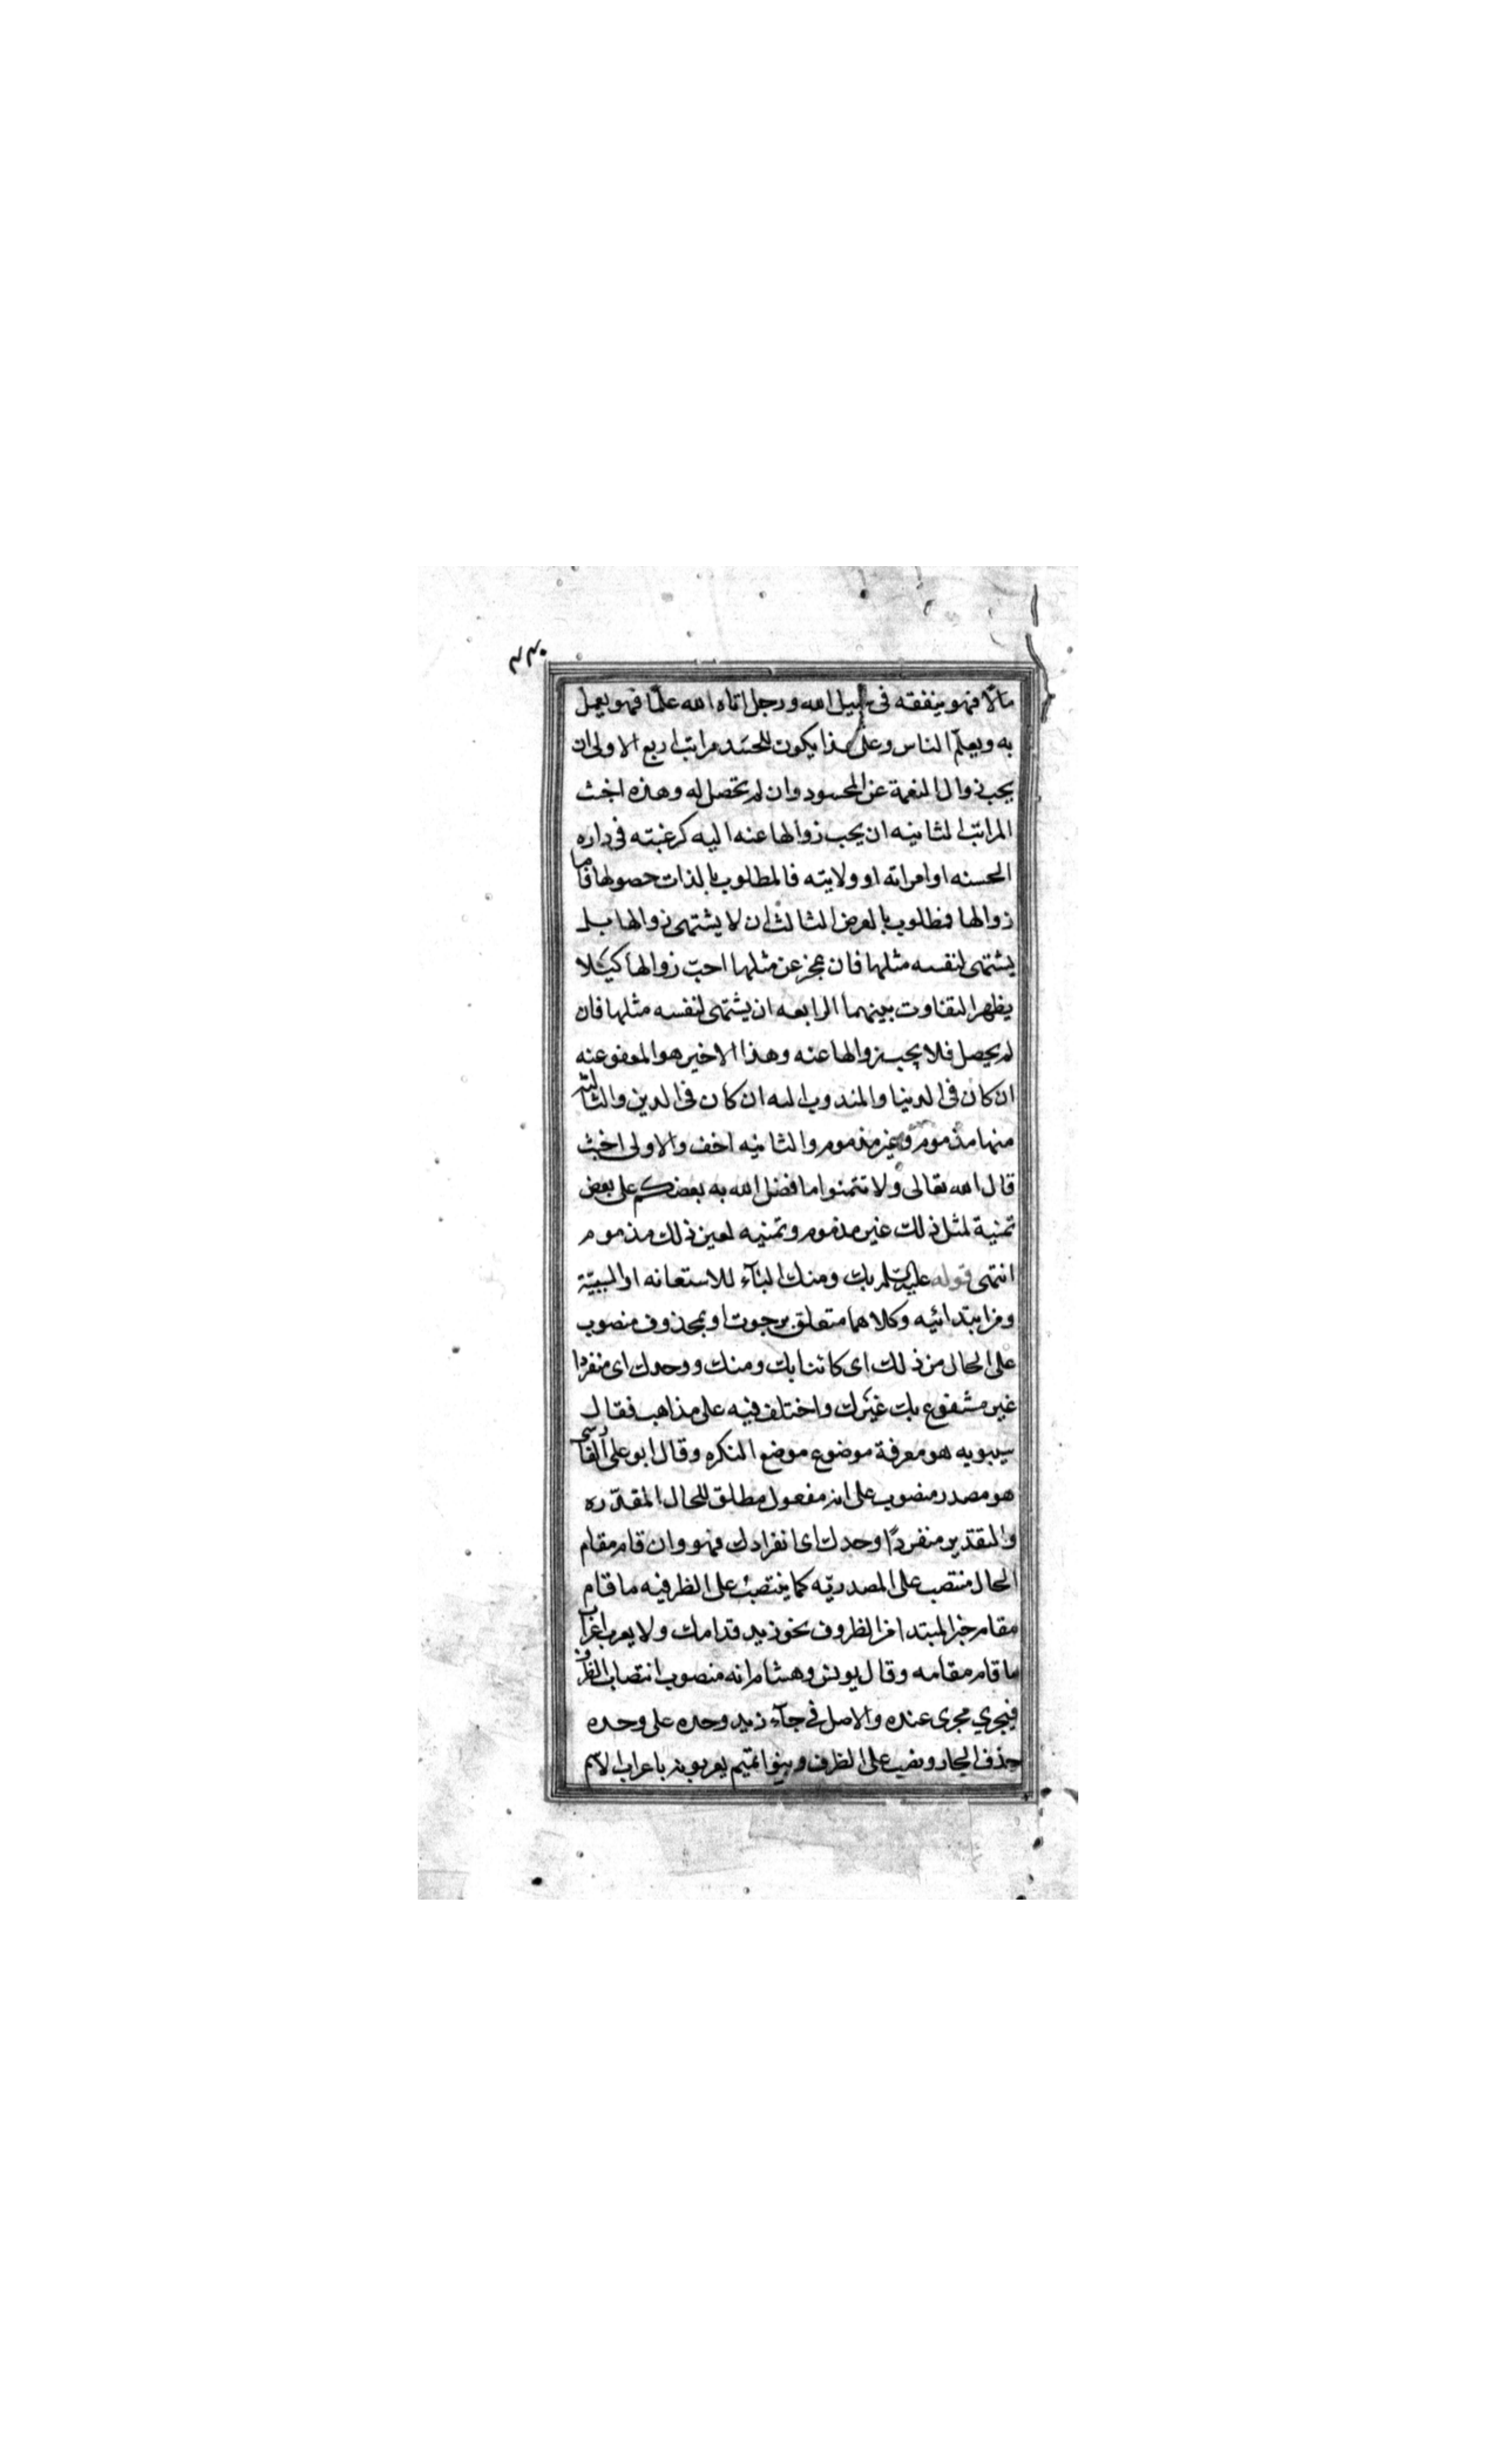 ٢٣٠
مالًا فهو ينفقه فى سبيل الله ورجل اتاه الله علمًا فهو يعمل
به ويعلّم الناس وعلى هذا يكون للحسد مراتب اربع الاولى ان
يحب زوال النعمة عن المحسود وان لم تحصل له وهذه اخبث
المراتب الثانيه ان يحب زوالها عنه اليه كرغبته فى داره
الحسنه او امراته او ولايته فالمطلوب بالذات حصولها فاما
زوالها فمطلوب بالعرض الثالث ان لا يشتهى زوالها بل
يشتهى لنفسه مثلها فان عجز عن مثلها احبّ زوالها كيلا
يظهر التفاوت بينهما الرابعه ان يشتهى لنفسه مثلها فان
لم يحصل فلا يحب زوالها عنه وهذا الاخير هو المعفو عنه
ان كان فى الدنيا والمندوب اليه ان كان فى الدين والثالثه
منها مذموم وغير مذموم والثانيه اخف والاولى اخبث
قال الله تعالى ولا تتمنوا ما فضل الله به بعضكم على بعض
تمنية لمثل ذلك غير مذموم وتمنيه لعين ذلك مذموم
انتهى قوله عليه السلم بك ومنك الباء للاستعانه او السببيّة
ومن ابتدائيه وكلاهما متعلق برجوت او بمحذوف منصوب
على الحال من ذلك اى كائنا بك ومنك ووحدك اى منفردا
غير مشفوع بك غيرك واختلف فيه على مذاهب فقال
سيبويه هو معرفة موضوع موضع النكره وقال ابو على الفارسى
هو مصدر منصوب على انه مفعول مطلق للحال المقدّره
والتقدير منفردًا وحدك اى انفرادك فهو وان قام مقام
الحال منتصب على المصدريّه كما ينتصب على الظرفيه ما قام
مقام خبر المبتدا من الظروف نحو زيد قدامك ولا يعرب اعراب
ما قام مقامه وقال يونس وهشام انه منصوب انتصاب الظروف
فيجري مجرى عنده والاصل فى جآء زيد وحده على وحده
حذف الجار ونصب على الظرف وبنوا تميم يعربونه باعراب الاسم